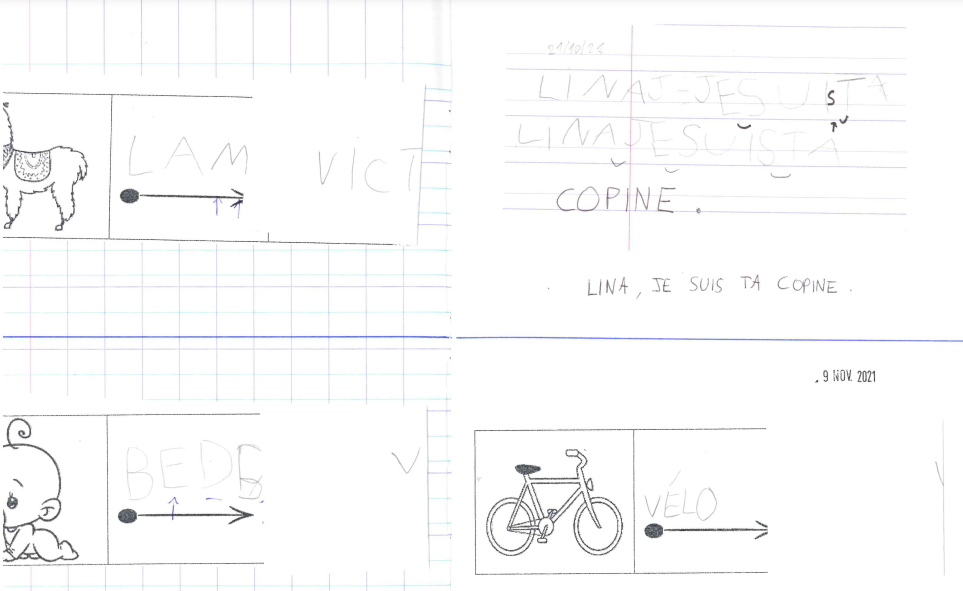 LAM
VICT
21/10/21
LINAJ-JESUISTA
s
LINAJESUISTA
COPINE.
LINA, JE SUIS TA COPINE.
BEDB
V
9 NOV. 2021
VÉLO